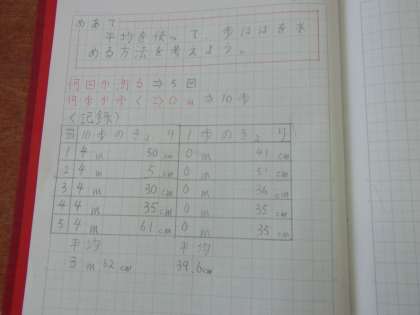 めあて
平均を使って、歩はばを求
める方法を考えよう。
何回か測る⇒5回
何歩か歩く ⇒10歩
〈記録〉
10歩の長さ 1歩の長さ
1 4m 50cm 0m 41cm
2 4m 5cm 0m
3 4m 30cm 0m 36cm
4 4m 35cm 0m 35cm
5 4m 61cm 0m 35cm
平均 平均
3m 52cm 39.6cm